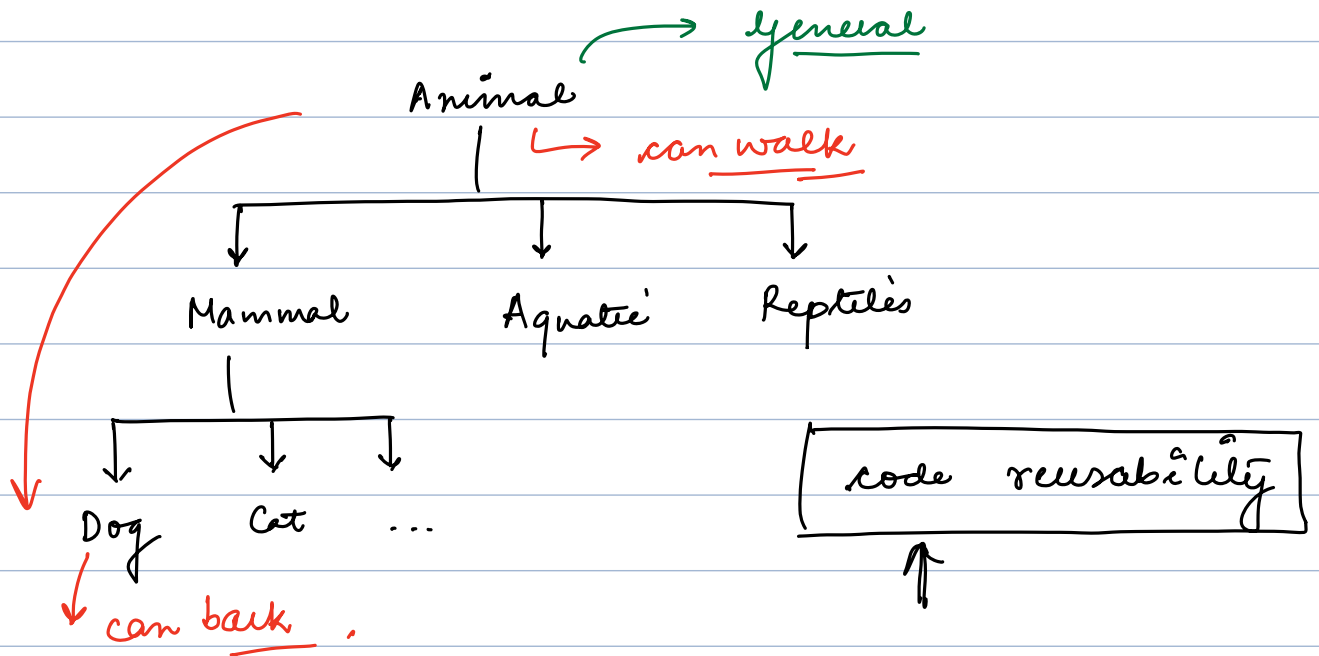 General
Animal
can walk
Mammal Aquatic Reptiles
code reusability
Dog Cat ...
can bark .